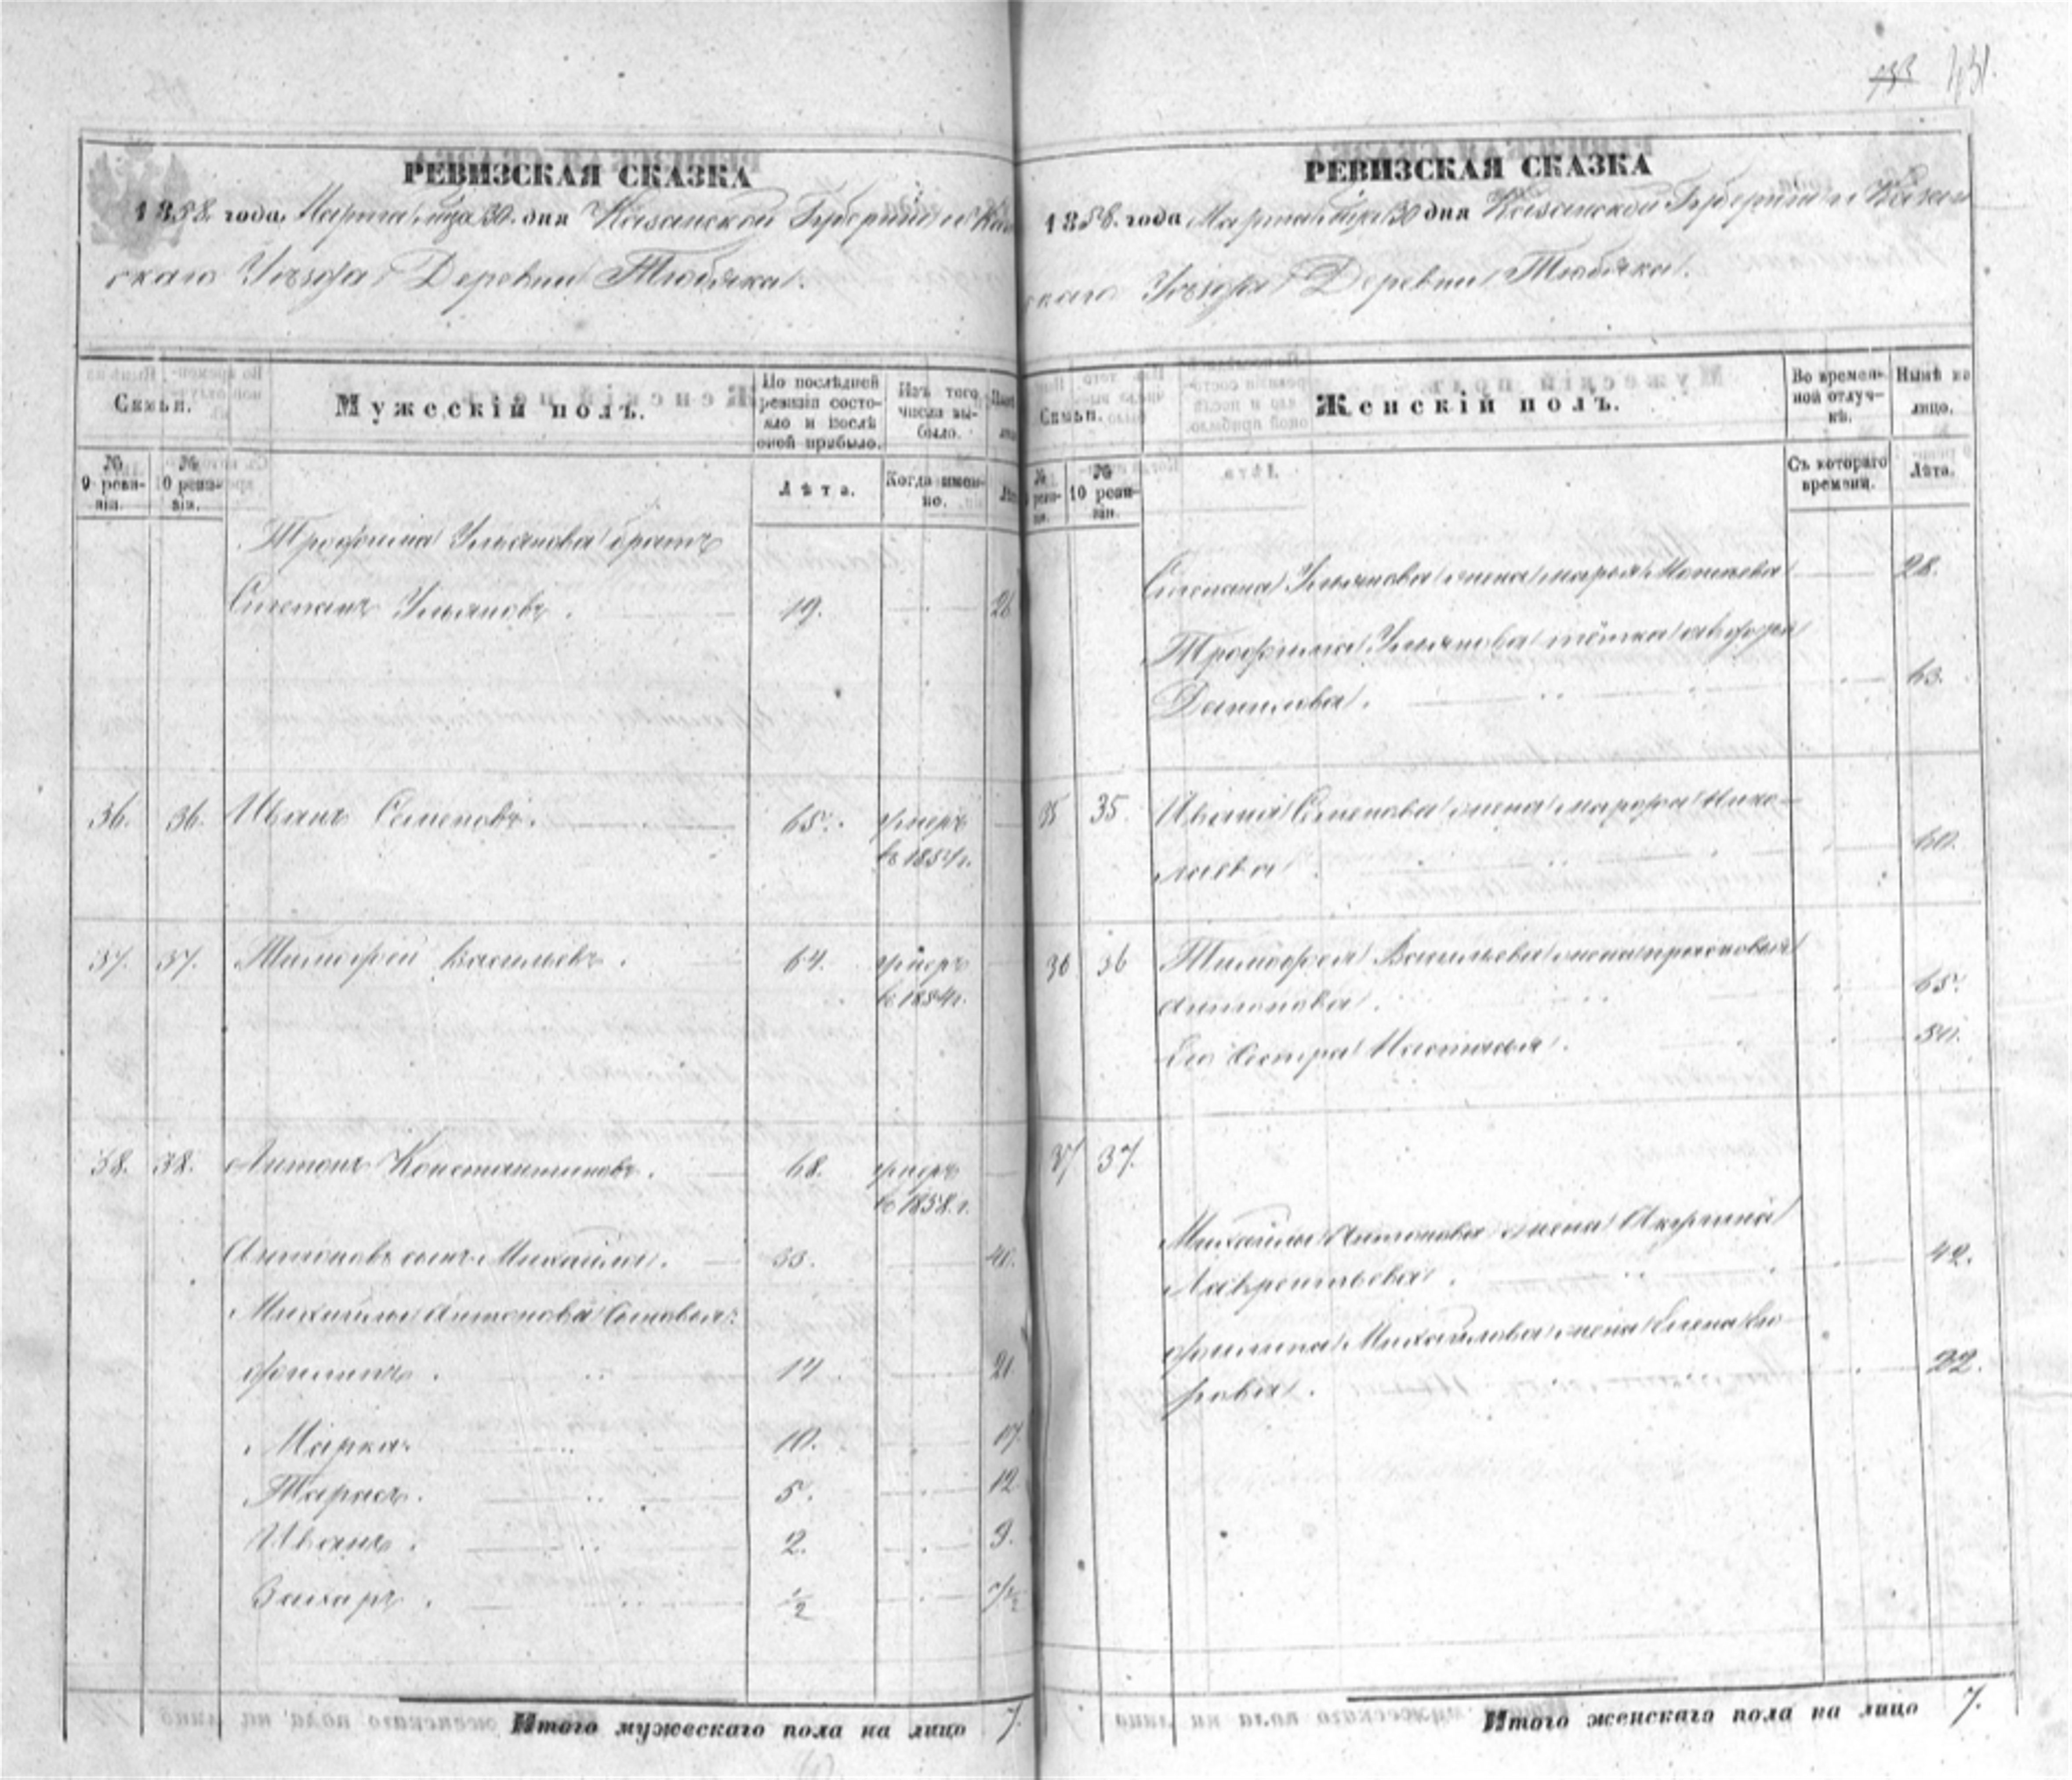 431.
РЕВИЗСКАЯ СКАЗКА
1858. года Марта мца 30. дня Казанской Губернiи и Казан
скаго Уѣзда Деревни Тюбяка.
Семьи.
Мужескiй полъ.
По послѣдней ревизiи состояло и послѣ оной прибыло.
Изъ того числа выбыло.
№ 9 ревизiи.
№ 10 ревизiи.
Лѣта.
Когда именно.
Трофима Ульянова братъ
Степанъ Ульяновъ. 19. 26
36. 36. Иванъ Семеновъ. 65. умеръ
въ 1854 г.
37. 37. Тимофей Васильевъ. 64. умеръ
въ 1854 г.
38. 38. Антонъ Константиновъ. 68. умеръ
въ 1858. г.
Антоновъ сынъ Михайла. 33. 40.
Михайлы Антонова Сыновья:
Филипъ. 14 21.
Марка. 10. 17.
Тарасъ. 5. 12
Иванъ. 2. 9.
Захаръ. 1/2 7 1/2
Итого мужескаго пола на лицо 7.
РЕВИЗСКАЯ СКАЗКА
1858. года Марта мца 30 дня Казанской Губернiи и Казан
скаго Уѣзда Деревни Тюбяка.
Семьи.
Женскiй полъ.
Во временной отлучкѣ.
Нынѣ на лицо.
№ ревизiи.
№ 10 ревизiи.
Съ котораго времени.
Лѣта.
Степана Ульянова жена Марья Матвеева 28.
Трофима Ульянова тётка
Данилова. 63.
35 35. Ивана Семенова жена Марфа Нико-
лаева 60.
36 36 Тимофея Васильева жена Прасковья
Антонова. 65.
Его Сестра Настасья. 50.
37 37.
Михайлы Антонова жена Акулина
Лаврентьева. 42.
Филипа Михайлова жена Елена Его
рова. 22.
Итого женскаго пола на лицо 7.